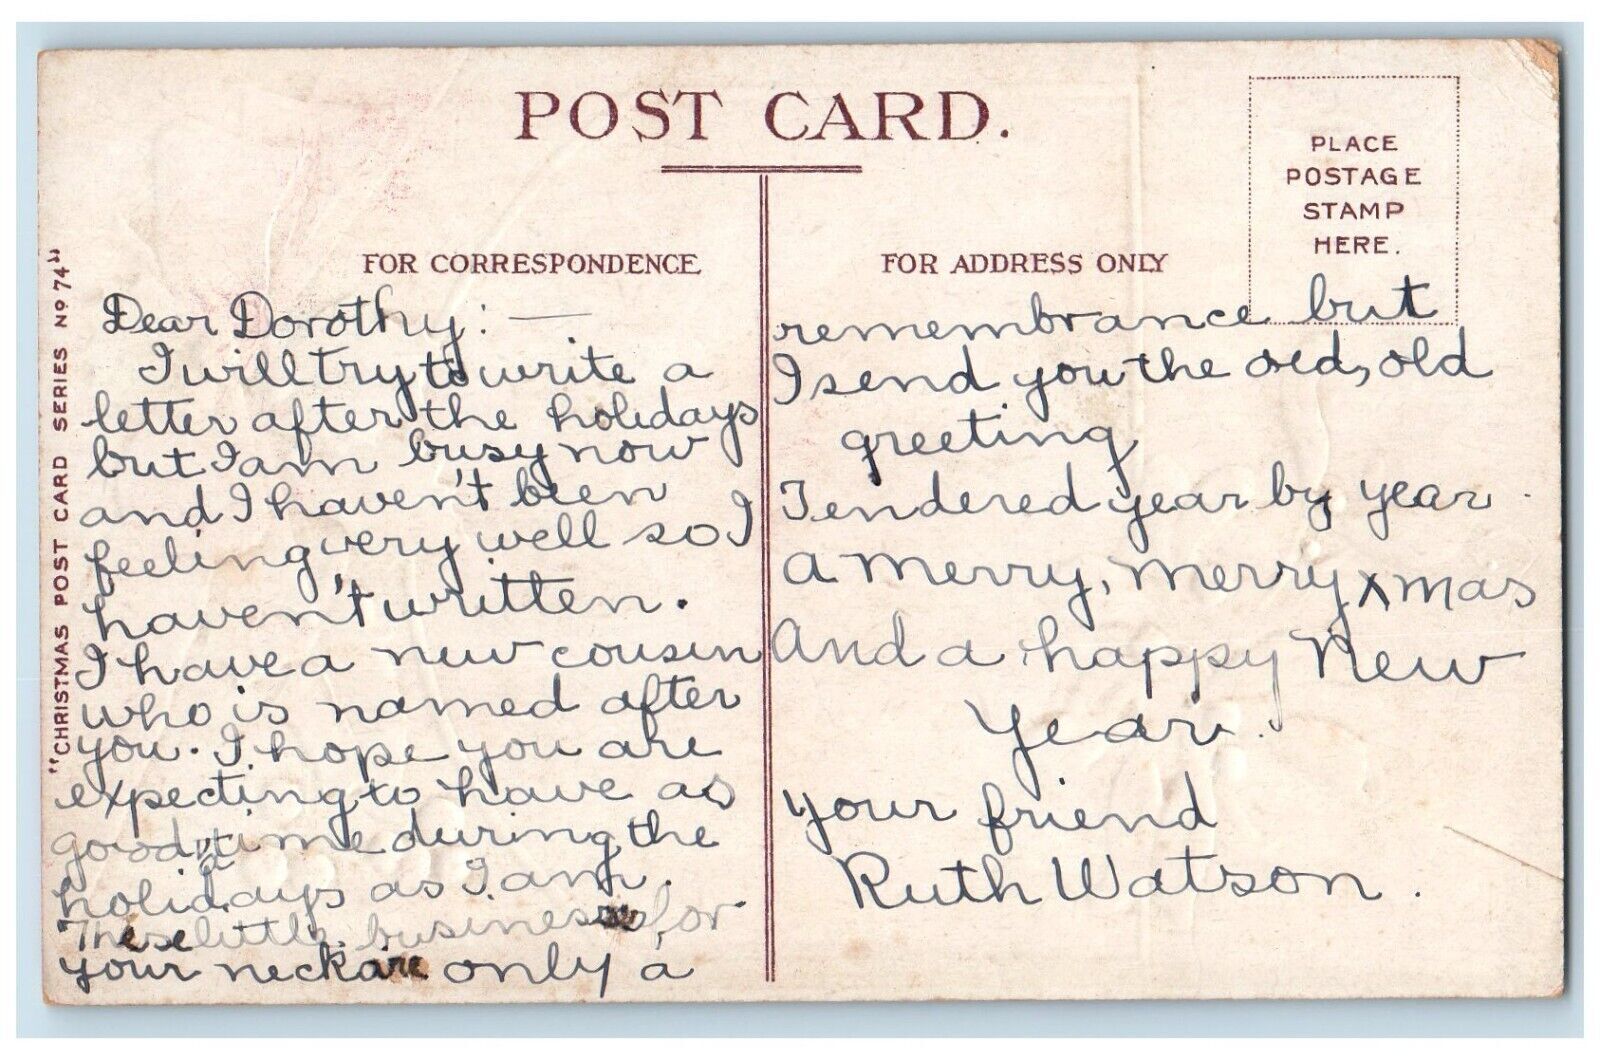 POST CARD.
PLACE
POSTAGE
STAMP
HERE.
"CHRISTMAS POST CARD SERIES Nº 74"
FOR CORRESPONDENCE
Dear Dorothy: —
I will try to write a
letter after the holidays
but I am busy now
and I haven't been
feeling very well so I
haven't written.
I have a new cousin
who is named after
you. I hope you are
expecting to have as
good a time during the
holidays as I am.
These little business for
your neck are only a
FOR ADDRESS ONLY
remembrance but
I send you the old, old
greeting
Tendered year by year
A merry, merry xmas
And a happy New
Year.
Your friend
Ruth Watson.